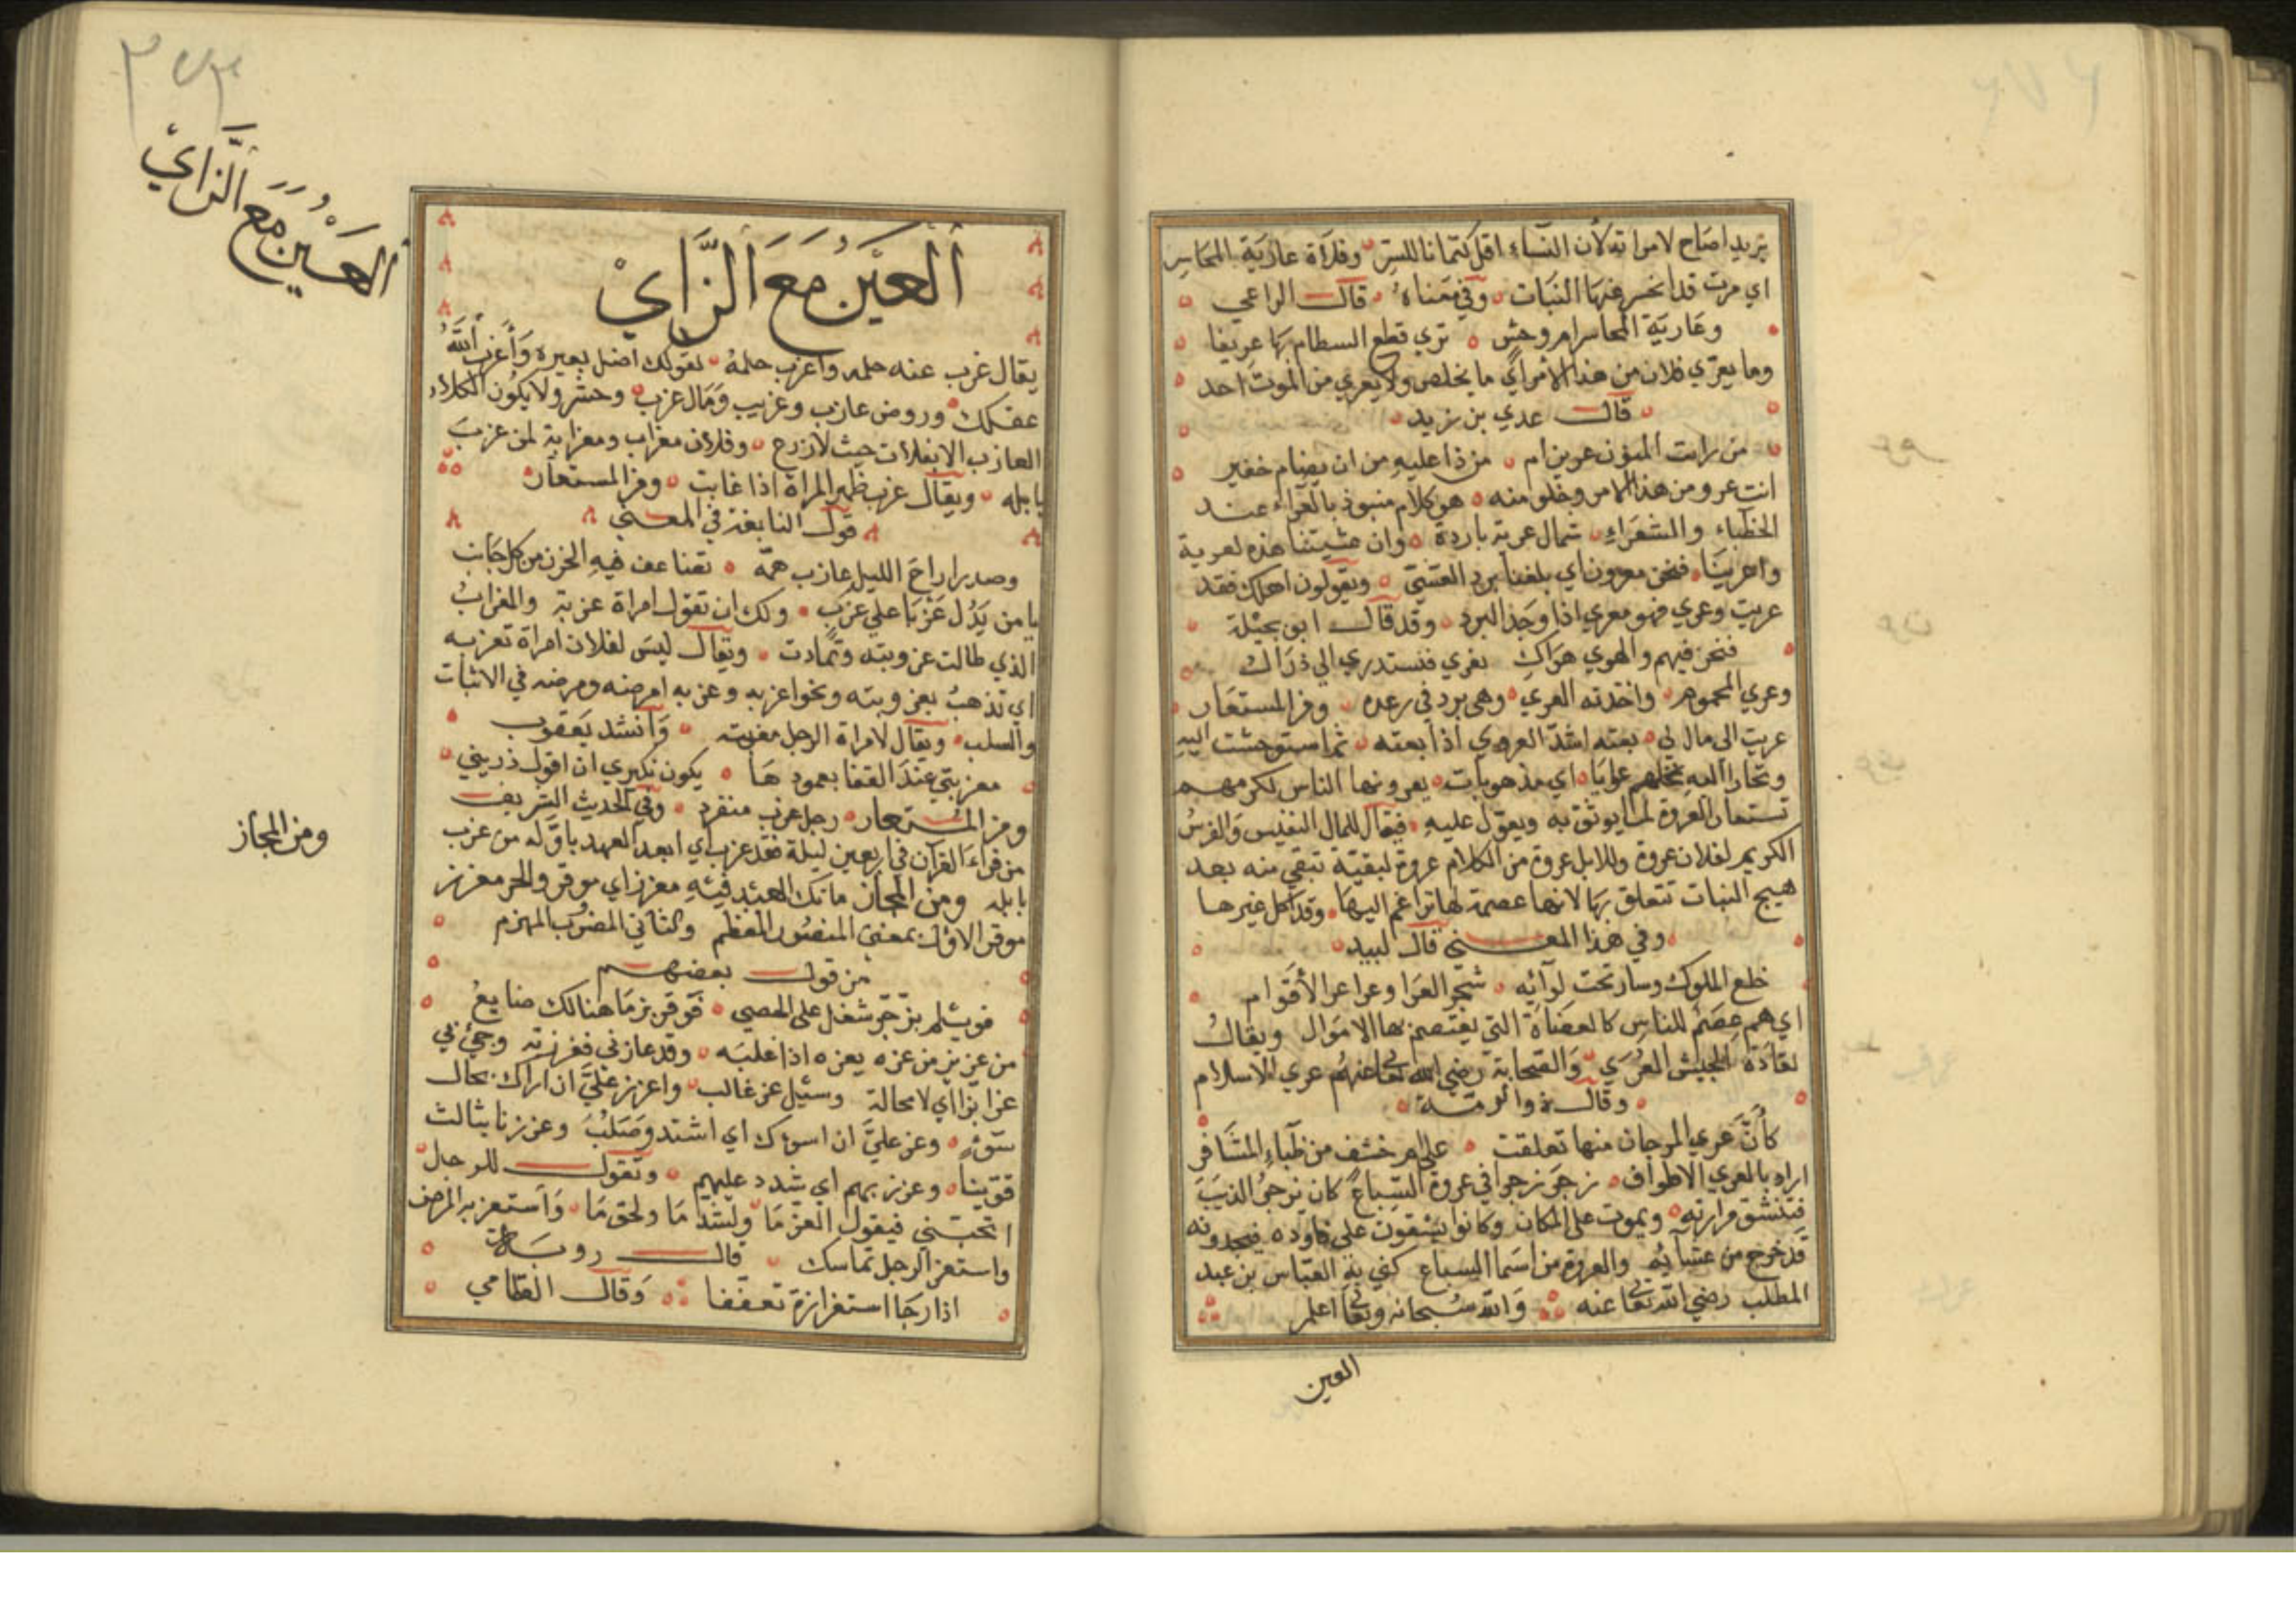 يريد اصاح لامراته لان النساء اقل كتمانا للستر وفلاة عارية المحاسر
اي مرت قد انحسر عنها النبات وفي معناه قال الراعي
وعارية المحاسر ام وحش تري قطع السطام بها عريفا
وما يعري فلان من هذا الامر اي ما يخلص ولا يعري من الموت احد
قال عدي بن زيد
من رايت المنون عرين ام من ذا عليه من ان يضام خفير
انت عرو من هذا الامر وخلو منه هو كلام منبوذ بالعراء عند
الخطباء والشعراء شمال عرية باردة وان عشيتنا هذه لعرية
واعرينا فنحن معرون اي بلغنا برد العشي ويقولون اهلك فقد
عريت وعري فهو معري اذا وجد البرد وقد قال ابو بجيلة
فنحن فيهم والهوي هواك نعري فنستدري الي ذراك
وعري المحموم واخذته العري وهي برد في رعده ومن المستعار
عريت الى مال لي بعته اشد العروي اذا بعته ثم استوحشت اليه
ونحارا لعه نخلهم عرايا اي مذهوبات يعرونها الناس لكرمهم
تستعار العروة لما يوثق به ويعول عليه فيقال للمال النفيس والفرس
الكريم لفلان عروة وللابل عروة من الكلام عروة لبقية تبقي منه بعد
هيج النبات تتعلق بها لانها عصمة لها تراغم اليها وقد اكل غيرها
وفي هذا المعني قال لبيد
خلع الملوك وسار تحت لوائه شجر العرا وعراعر الأقوام
اي هم عصم للناس كالعضاة التي يعتصم بها الاموال ويقال
لقادة الجيش العري والصحابة رضي الله تعا عنهم عري الاسلام
وقال ذو الرمة
كأن عري المرجان منها تعلقت علي ام خشف من ظباء المشافر
اراد بالعري الاطواف زجر زجرا في عروة السباع كان يزجر الذيب
فتنشق مرارته ويموت على المكان وكانوا يشقون على فاوده فيجدونه
قد خرج من عشائه والعروة من اسما السباع كني به العباس بن عبد
المطلب رضي الله تعا عنه والله سبحانه وتعا اعلم
العين
العين مع الزاي
العين مع الزاي
يقال عزب عنه حلمه واعزب حلمه كقولك اضل بعيره وأعزب الله
عقلك وروض عازب وعزيب ومال عزب وحشر ولا يكون الكلاء
العازب الا بفلات حيث لا زرع وفلان معزاب ومعزابة لمن عزب
بابله ويقال عزب ظهر المراة اذا غابت ومن المستعار
قول النابغة في المعني
وصدر اراح الليل عازب همه تضاعف فيه الحزن من كل جانب
يا من يدل عزبا علي عزب ولك ان تقول امراة عزبة والمعزاب
الذي طالت عزوبته وتمادت ويقال ليس لفلان امراة تعزبه
اي تذهب بعزوبته ونحو اعزبه وعزبه امرضه ومرضه في الاثبات
والسلب ويقال لامراة الرجل معزبته وانشد يعقوب
معزبتي عند القفا بعمودها يكون نكيري ان اقول ذريني
ومن المستعار رجل عزب منفرد وفي الحديث الشريف
من قراء القرآن في اربعين ليلة فقد عزب اي ابعد العهد باوله من عزب
بابله ومن المجاز ما تك العبد فيئه معزز اي موقر والحر معزز
موقر الاول بمعني المنصور المعظم والثاني المضروب المهزم
من قول بعضهم
من عزيز من عزه يعزه اذا غلبه وقد عازني فعززته وجئ بي
عزا بزا اي لا محالة وسئيل عز غالب واعزز علي ان اراك بحال
سوء وعز علي ان اسوك اي اشتد وصلب وعززنا بثالث
قوينا وعزز بهم اي شدد عليهم وتقول للرجال
اتحبني فيقول لعز ما ولشد ما ولحق ما واستعز به المرض
واستعز الرجل تماسك قال روبة
اذا رجا استعزازة تعففا وقال القطامي
ومن المجاز